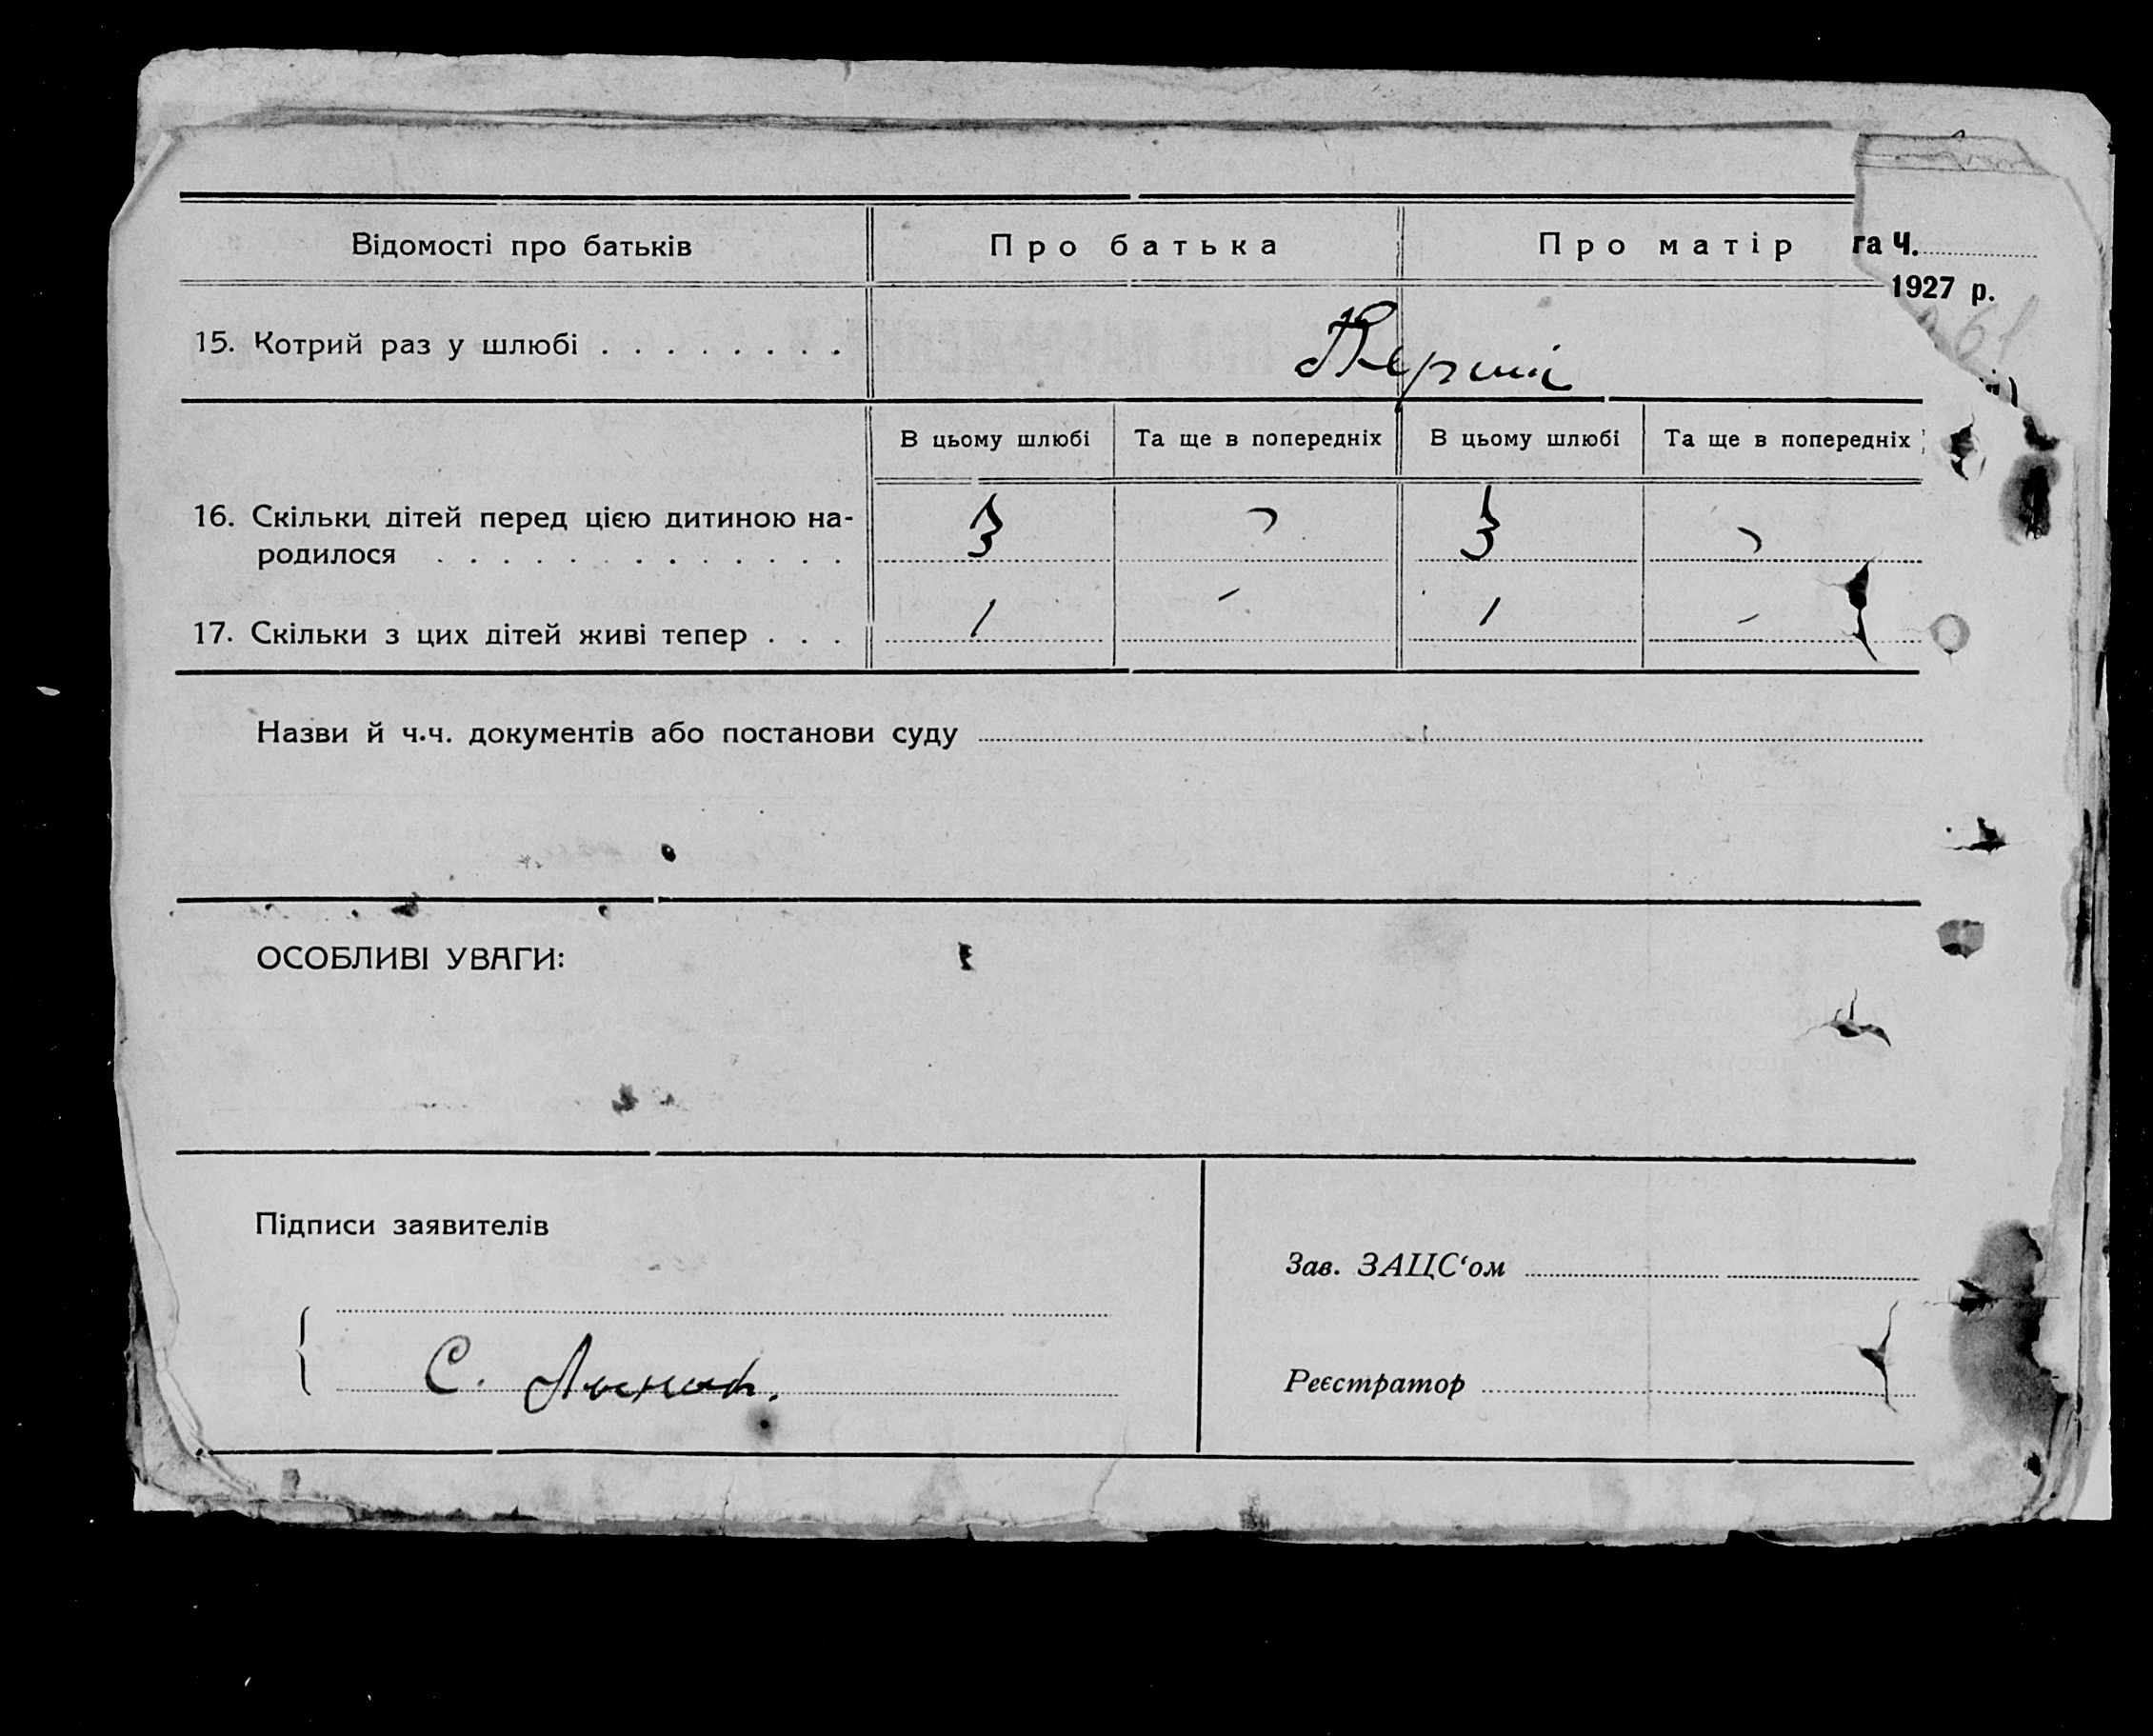 Відомості про батьків Про батька Про матір га Ч.
1927 р.
61
15. Котрий раз у шлюбі Перший
В цьому шлюбі Та ще в попередніх В цьому шлюбі Та ще в попередніх
16. Скільки дітей перед цією дитиною на-
родилося 3 3
17. Скільки з цих дітей живі тепер 1 - 1 -
Назви й ч.ч. документів або постанови суду
ОСОБЛИВІ УВАГИ:
Підписи заявителів
Зав. ЗАЦС‘ом
С.
Реєстратор